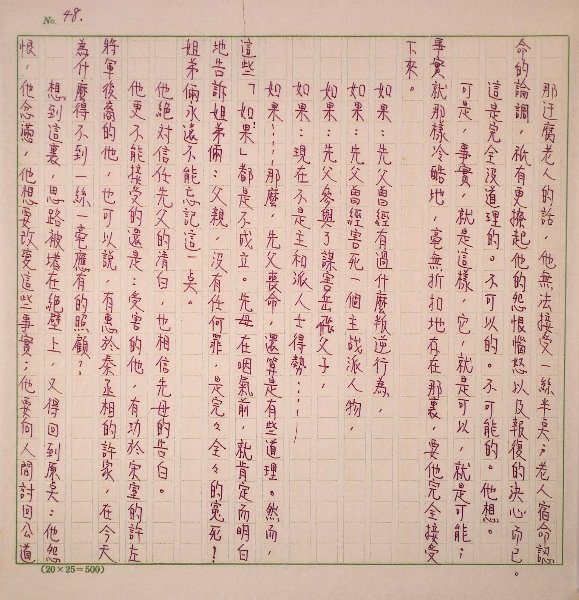 No. 48.
那迂腐老人的話，他無法接受一絲半点；老人宿命認
命的論調，祇有更撩起他的怨恨惱怒以及報復的決心而已。
這是完全沒道理的。不可以的。不可能的。他想。
可是，事實，就是這樣，它，就是可以，就是可能；
事實就那樣冷酷地，毫無折扣地存在那裏，要他完全接受
下來。
如果：先父曾經有過什麼叛逆行為，
如果：先父曾經害死一個主战派人物，
如果：先父參與了謀害岳飛父子，
如果：現在不是主和派人士得勢……
如果……那麼，先父喪命，還算是有些道理。然而，
這些「如果」都是不成立。先母在咽氣前，就肯定而明白
地告訴姐弟倆：父親，沒有任何罪，是完々全々的冤死！
姐弟倆永遠不能忘記這一点。
他絕對信任先父的清白，也相信先母的告白。
他更不能接受的還是：受害的他，有功於宋室的許左
將軍後裔的他，也可以說，有惠於秦丞相的許家，在今天
為什麼得不到一絲一毫應有的照顧？
想到這裏，思路被堵在絕壁上，又得回到原点：他怨
恨，他念懑，他想要改變這些事實；他要向人間討回公道
(20×25=500)